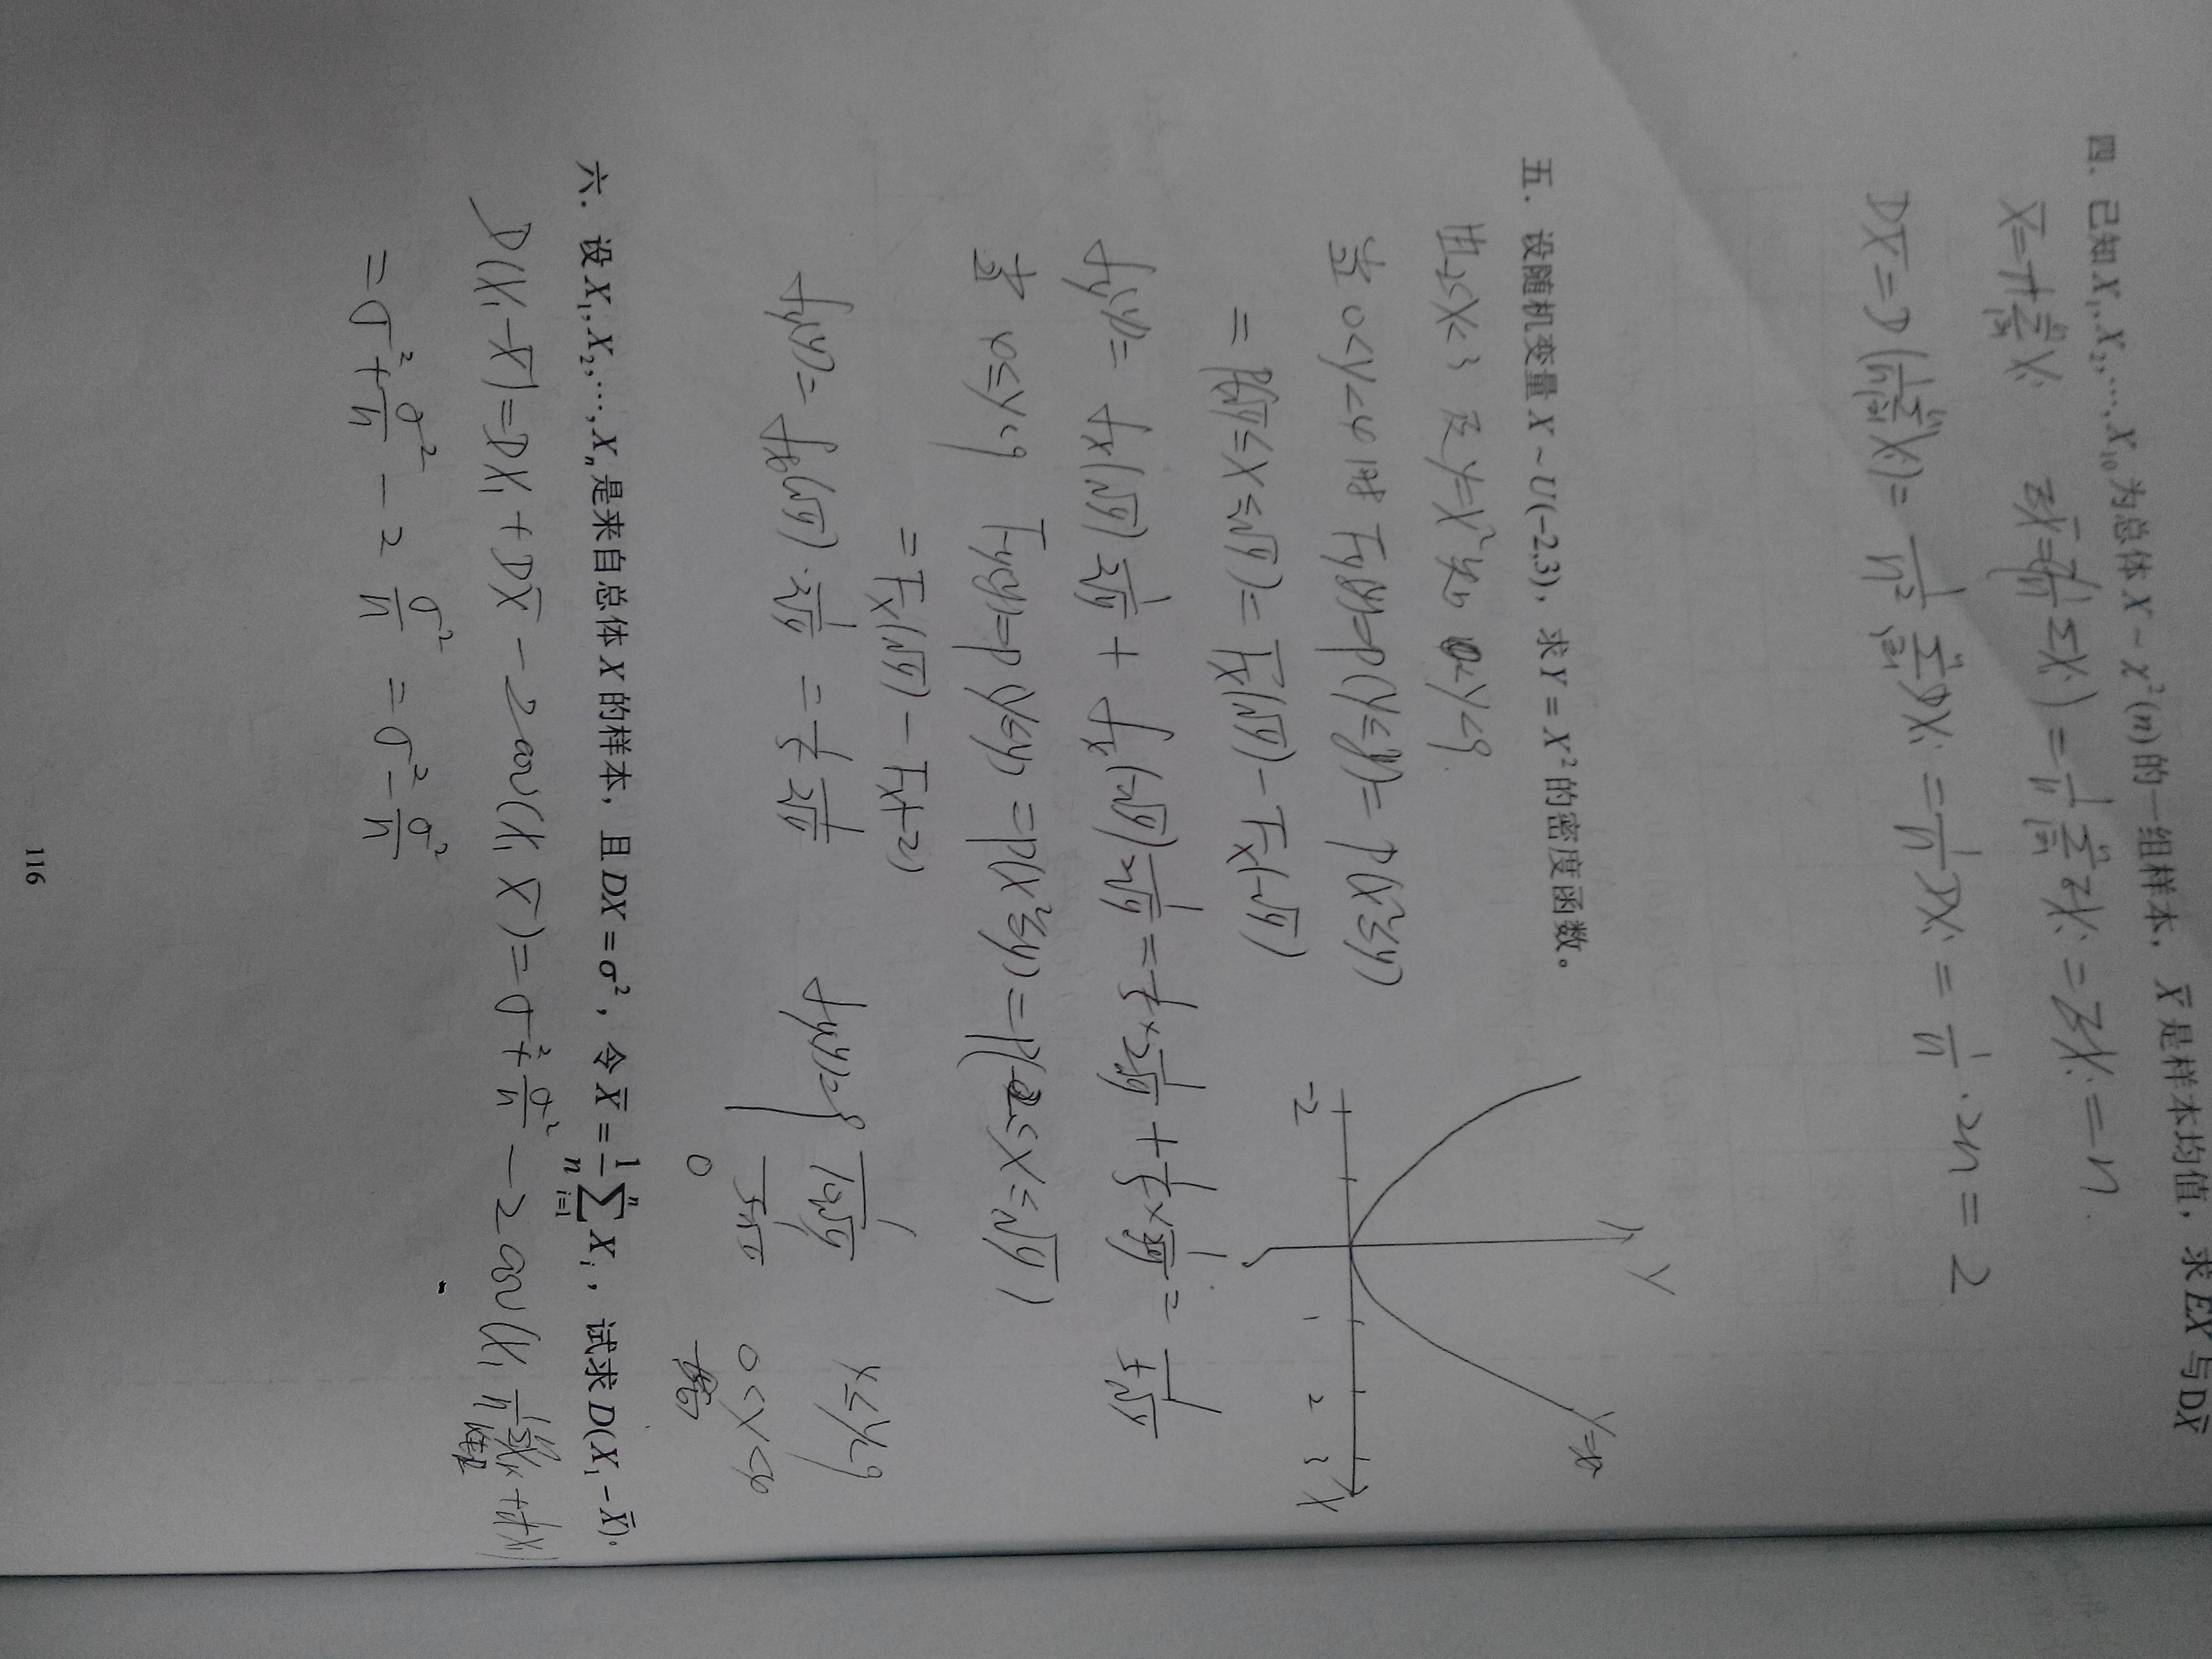 四. 已知 X₁,X₂,…,X₁₀ 为总体 X ~ χ²(n) 的一组样本, X̄ 是样本均值, 求 EX̄ 与 DX̄
X̄ = 1/n Σ Xᵢ EX̄ = E(1/n Σ Xᵢ) = 1/n Σ EXᵢ = EXᵢ = n.
DX̄ = D(1/n Σ Xᵢ) = 1/n² Σ DXᵢ = 1/n DXᵢ = 1/n · 2n = 2
五. 设随机变量 X ~ U(-2,3), 求 Y = X² 的密度函数。
由 -2<X<3 及 Y=X² 知 0<Y<9.
当 0<y<4 时 F_Y(y)=P(Y≤y)= P(X²≤y)
= P(-√y≤X≤√y) = F_X(√y) - F_X(-√y)
f_Y(y)= f_X(√y) 1/2√y + f_X(-√y) 1/2√y = 1/5 × 1/2√y + 1/5 × 1/2√y = 1/5√y
当 4≤y<9 F_Y(y)=P(Y≤y) = P(X²≤y) = P(-2<X≤√y)
= F_X(√y) - F_X(-2)
f_Y(y)= f_X(√y) · 1/2√y = 1/5 1/2√y
f_Y(y)={ 1/10√y 4≤y<9
1/5√y 0<y<4
0
Y
y=x²
-2 1 2 3 X
六. 设 X₁,X₂,…,Xₙ 是来自总体 X 的样本, 且 DX = σ², 令 X̄ = 1/n Σᵢ₌₁ⁿ Xᵢ, 试求 D(X₁ - X̄).
D(X₁ - X̄) = DX₁ + DX̄ - 2cov(X₁ X̄) = σ² + σ²/n - 2cov(X₁
= σ² + σ²/n - 2 σ²/n = σ² - σ²/n
116